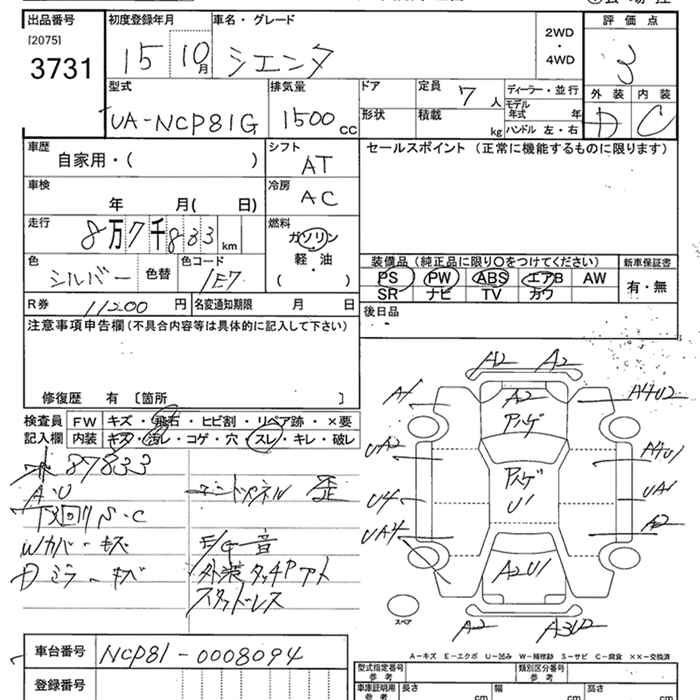 出品番号 初度登録年月 車名・グレード 2WD・4WD 評価点
[2075]
3731 15 10月 シエンタ 3
型式 排気量 ドア 定員 7人 ディーラー・並行 外装 内装
UA-NCP81G 1500cc 形状 積載 kg モデル年式 年 D C
ハンドル 左・右
車歴 シフト セールスポイント (正常に機能するものに限ります)
自家用・( ) AT
車検 冷房
年 月( 日) AC
走行 燃料
8万7千833km ガソリン
軽・油
( )
色 シルバー 色替 色コード 1E7
装備品 (純正品に限り○をつけてください) 新車保証書
PS PW ABS エアB AW 有・無
SR ナビ TV カワ
R券 11200円 名変通知期限 月 日 後日品
注意事項申告欄 (不具合内容等は具体的に記入して下さい)
修復歴 有 〔箇所 〕
検査員記入欄 FW キズ・飛石・ヒビ割・リペア跡・×要
内装 キズ・汚レ・コゲ・穴・スレ・キレ・破レ
87833
A・U
下回りS・C
Wカバーキズ E/G音
Dミラーキズ 外装タッチPアト
スタッドレス
A2 A2
A1 A2 A4U2
アハゲ
UA2 A4U1
アハゲ
U4 U1 UA1
UA4 A2
A2U1
A2 A3U2
スペア
A-キズ E-エクボ U-凹み W-補修跡 S-サビ C-腐食 XX-交換済
車台番号 NCP81-0008094
登録番号
型式指定番号 類別区分番号
参考
車庫証明用 長さ cm 幅 cm 高さ cm
参考